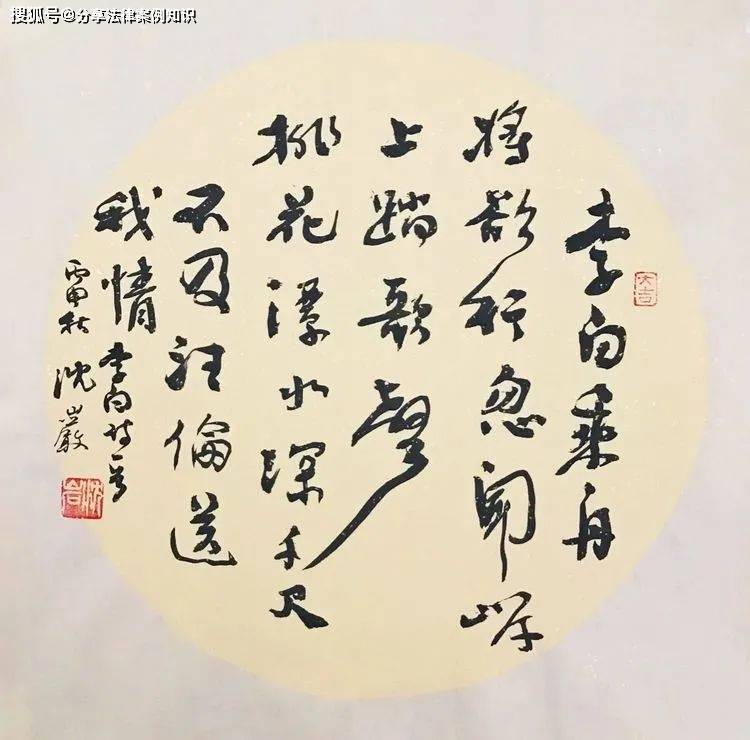 搜狐号@分享法律案例知识
李白乘舟
將欲行忽聞岸
上踏歌聲
桃花潭水深千尺
不及汪倫送
我情
李白诗一首
丙申秋 沈巖
大吉